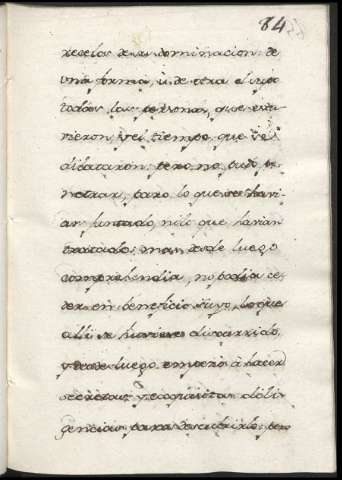 84
recelos de su dominacion: de
una forma, ú de otra él supo
todas las personas, que estu-
vieron, y el tiempo que se
dilataron: pero no pudo pe-
netrar, para lo que se havi-
an juntado, ni lo que havian
tratado: mas desde luego
comprehendia, no podia ce-
der en beneficio suyo, lo que
alli se huviese discurrido,
y desde luego empezó à hacer
secretas, y esquisitas dili-
gencias para descubrirlo; pero